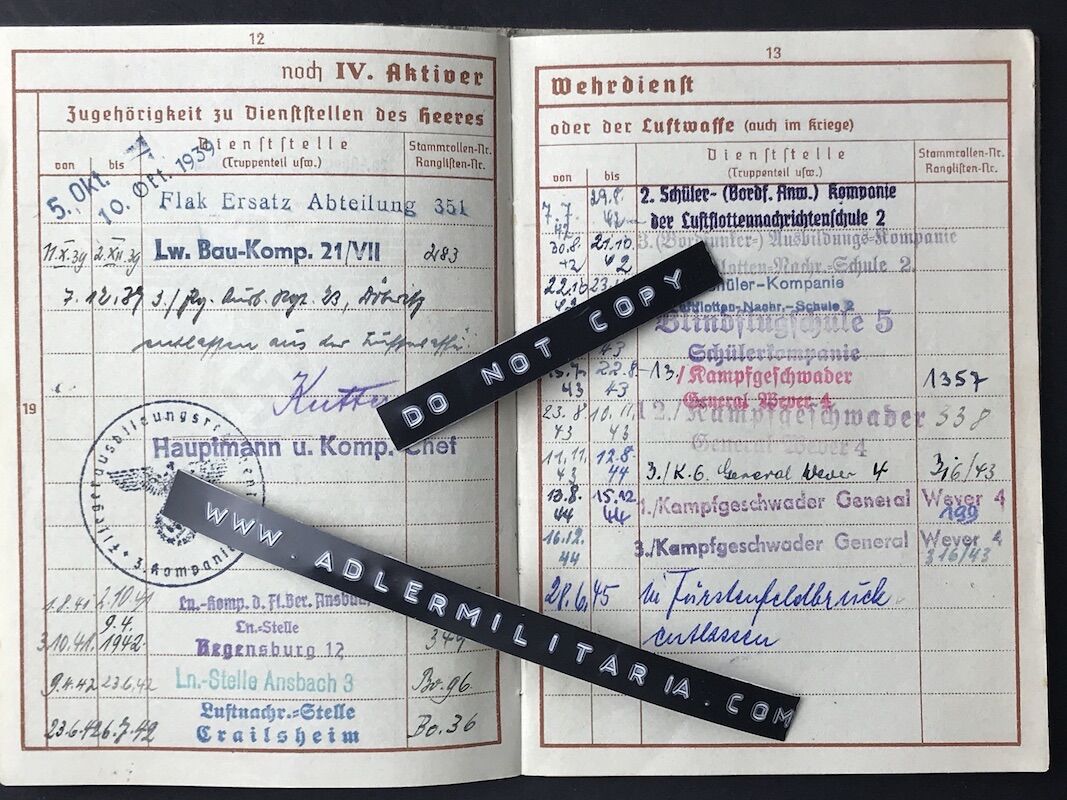 12
noch IV. Aktiver
Zugehörigkeit zu Dienststellen des Heeres
von
bis
Dienststelle
(Truppenteil usw.)
Stammrollen-Nr.
Ranglisten-Nr.
5. Okt.
10. Okt. 1939
Flak Ersatz Abteilung 351
11.X.39 2.XII.39 Lw. Bau-Komp. 21/VII 2183
7.12.39 3./
entlassen aus der Luftwaffe
19
Hauptmann u. Komp. Chef
Fliegerausbildungsre
3. Kompanie
1.8.41 2.10.41 Ln.-Komp. d. Fl.Ber. Ansbach
3.10.41. 9.4. 1942. Ln.-Stelle
Regensburg 12 349
9.4.42 23.6.42 Ln.-Stelle Ansbach 3 Bo.96
23.6.42 6.7.42 Luftnachr.-Stelle
Crailsheim Bo.36
13
Wehrdienst
oder der Luftwaffe (auch im Kriege)
von
bis
Dienststelle
(Truppenteil usw.)
Stammrollen-Nr.
Ranglisten-Nr.
7.7. 42 29.8. 42 2. Schüler- (Bordf. Anw.) Kompanie
der Luftflottennachrichtenschule 2
30.8. 42 21.10. 42 3.(Bordfunker-) Ausbildungs-Kompanie
flotten-Nachr.-Schule 2.
22.10 Schüler-Kompanie
Luftflotten-Nachr.-Schule 2
Blindflugschule 5
43 Schülerkompanie
15.7. 43 22.8. 43 13./Kampfgeschwader 1357
General Wever 4
23.8 43 10.11. 43 12./Kampfgeschwader 338
General Wever 4
11.11. 43 12.8. 44 3./K.G. General Wever 4 316/43
13.8. 44 15.12 44 1./Kampfgeschwader General Wever 4
199
16.12. 44 3./Kampfgeschwader General Wever 4
316/43
28.6.45 in Fürstenfeldbruck
entlassen
DO NOT COPY
WWW.ADLERMILITARIA.COM